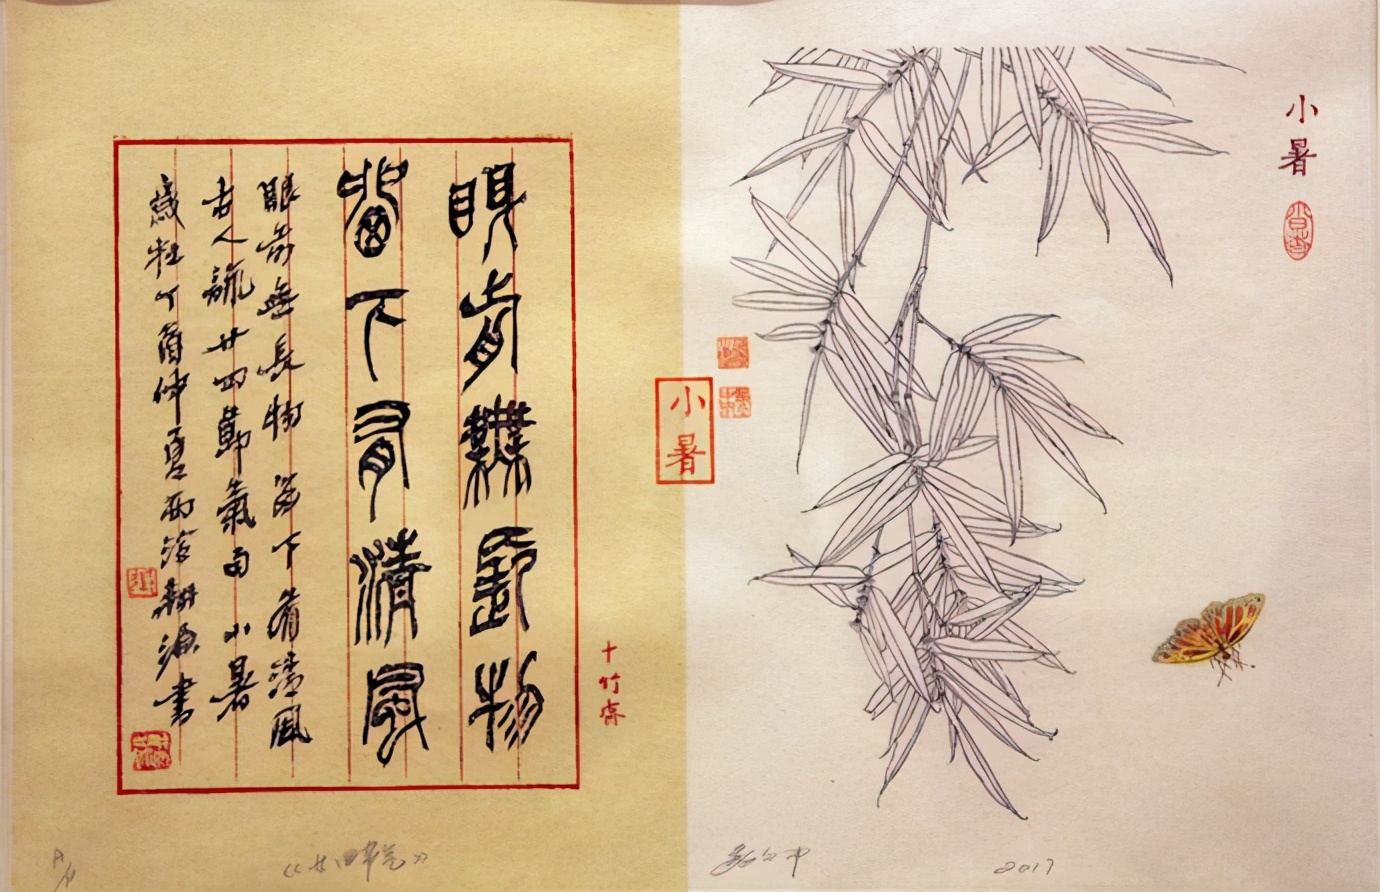 眼前無長物
窗下有清風
眼前無長物窗下有清風
古人詠廿四節氣句小暑
歲在丁酉仲夏西泠源書
十竹齋
小暑
小暑
2017